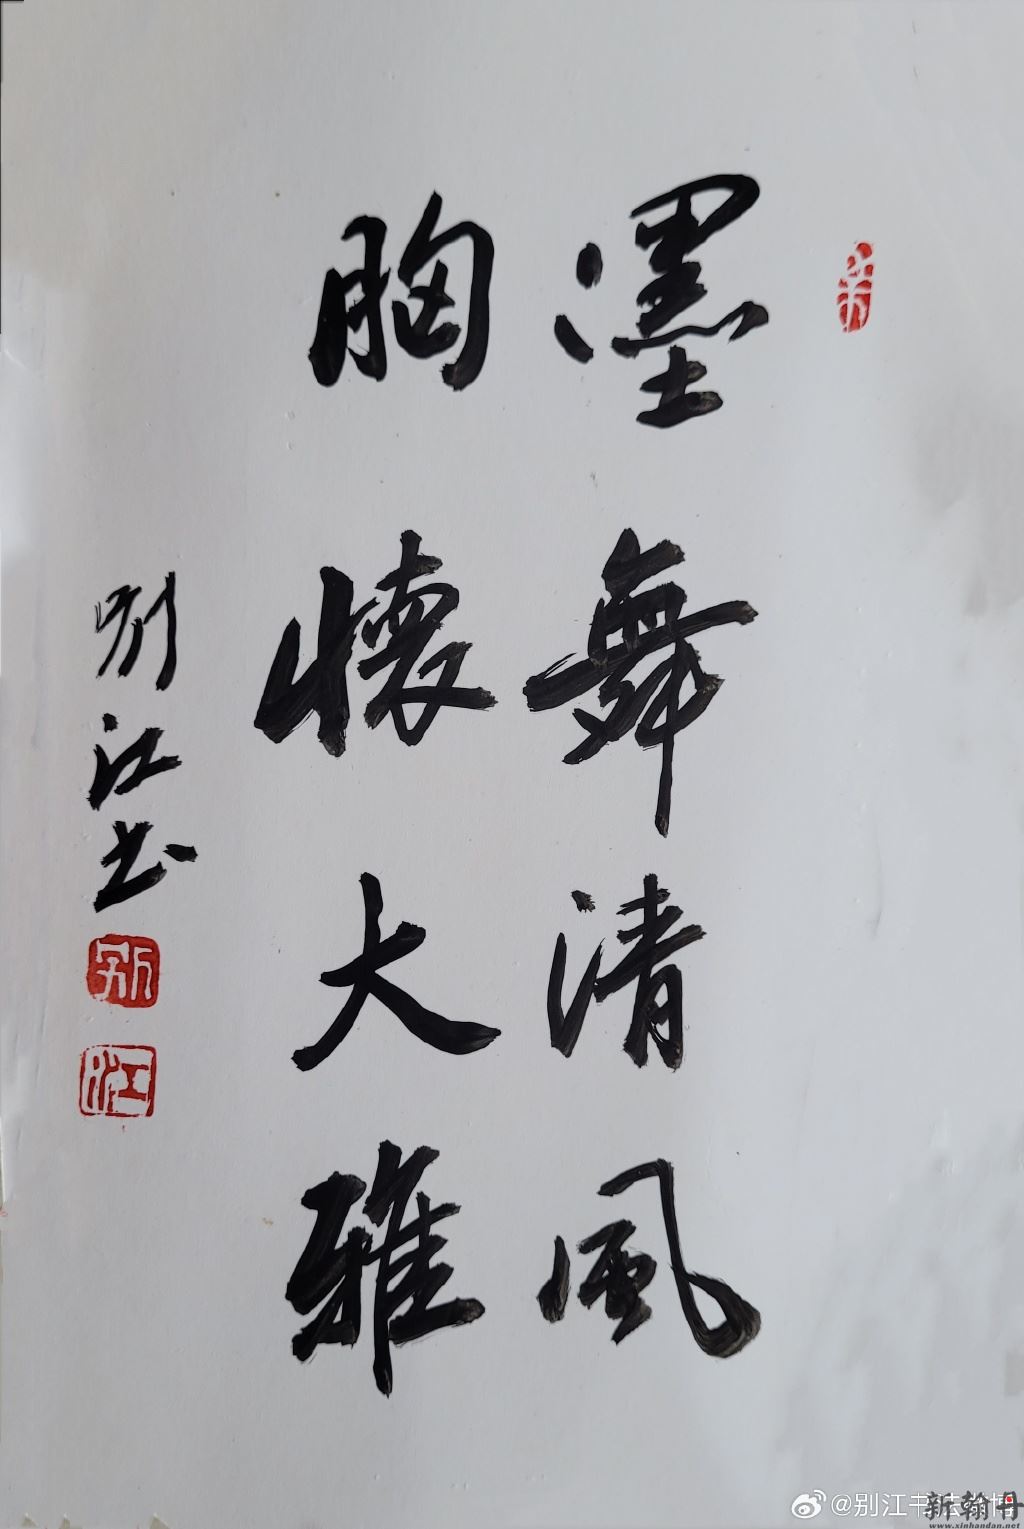 墨舞清風
胸懷大雅
别江书
别
江
@别江书法翰博
新翰丹
www.xinhandan.net